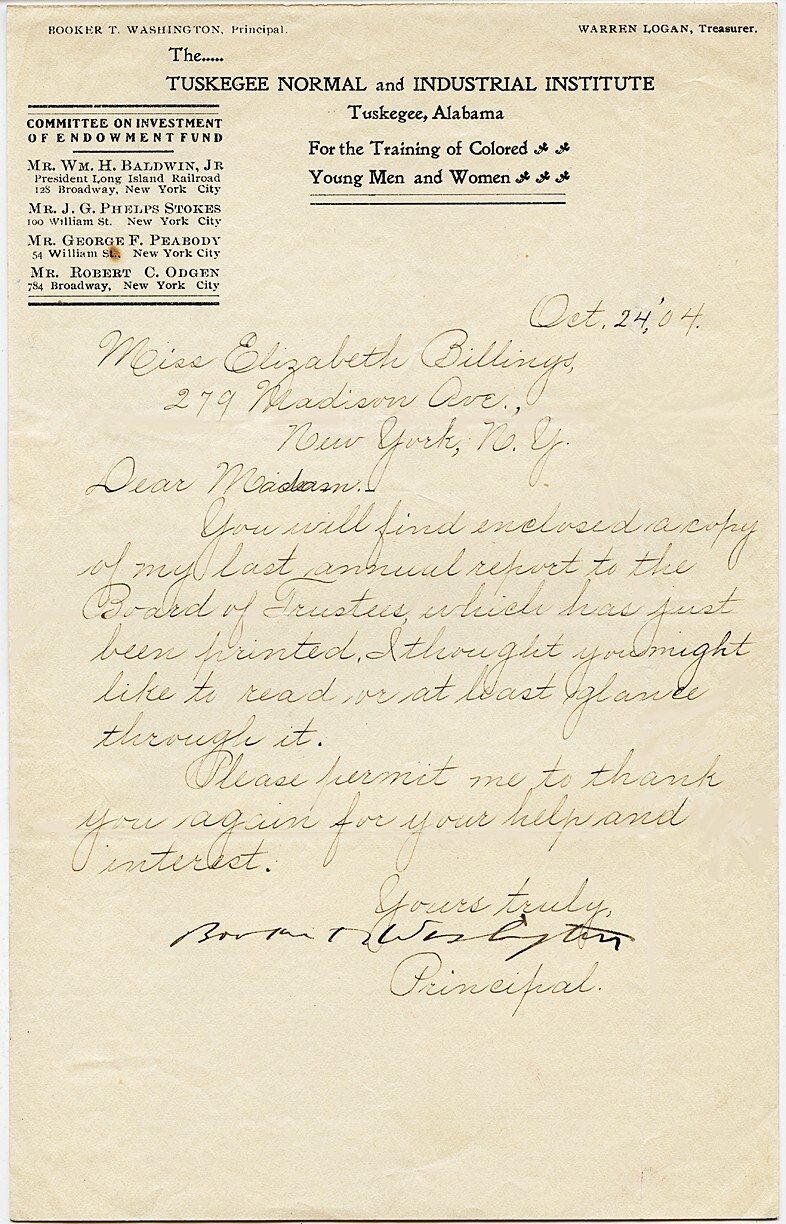 BOOKER T. WASHINGTON, Principal.
WARREN LOGAN, Treasurer.
The.....
TUSKEGEE NORMAL and INDUSTRIAL INSTITUTE
Tuskegee, Alabama
For the Training of Colored
Young Men and Women
COMMITTEE ON INVESTMENT
OF ENDOWMENT FUND
MR. WM. H. BALDWIN, JR
President Long Island Railroad
128 Broadway, New York City
MR. J. G. PHELPS STOKES
100 William St. New York City
MR. GEORGE F. PEABODY
54 William St., New York City
MR. ROBERT C. ODGEN
784 Broadway, New York City
Oct. 24,'04.
Miss Elizabeth Billings,
279 Madison Ave.,
New York, N. Y.
Dear Madam:-
You will find enclosed a copy
of my last annual report to the
Board of Trustees, which has just
been printed. I thought you might
like to read or at least glance
through it.
Please permit me to thank
you again for your help and
interest.
Yours truly,
Booker T. Washington
Principal.